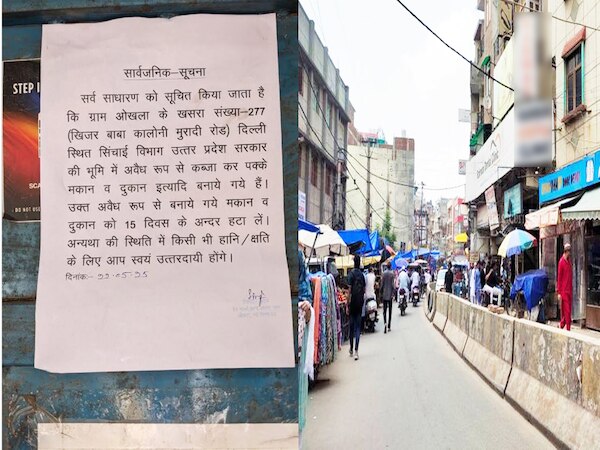 STEP I
सार्वजनिक–सूचना
सर्व साधारण को सूचित किया जाता है
कि ग्राम ओखला के खसरा संख्या–277
(खिजर बाबा कालोनी मुरादी रोड) दिल्ली
स्थित सिंचाई विभाग उत्तर प्रदेश सरकार
की भूमि में अवैध रूप से कब्जा कर पक्के
मकान व दुकान इत्यादि बनाये गये हैं।
उक्त अवैध रूप से बनाये गये मकान व
दुकान को 15 दिवस के अन्दर हटा लें।
अन्यथा की स्थिति में किसी भी हानि/क्षति
के लिए आप स्वयं उत्तरदायी होंगे।
दिनांकः- 22-05-25
SCA
DO NOT USE